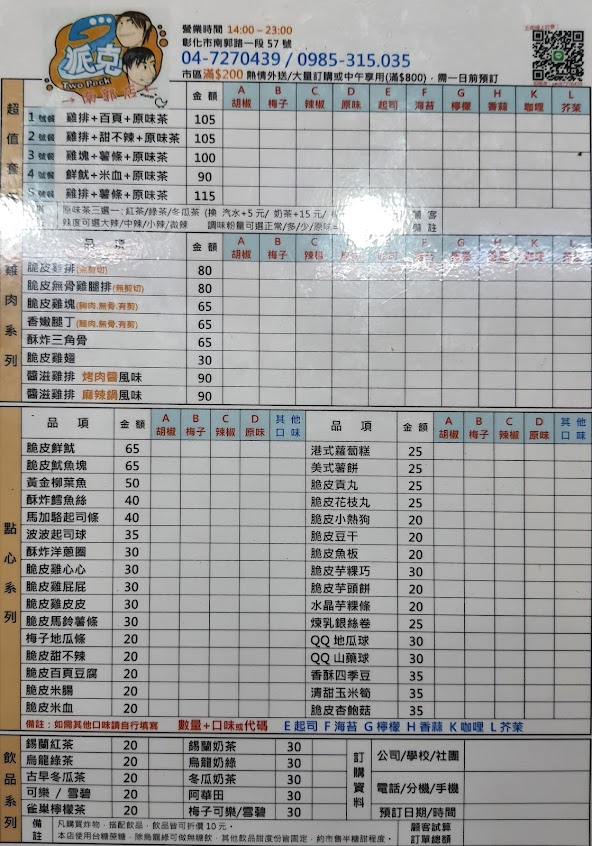 派克
Two Peck
南郭店
營業時間 14:00~23:00
彰化市南郭路一段 57 號
04-7270439 / 0985-315.035
市區滿$200 熱情外送/大量訂購或中午享用(滿$800)，需一日前預訂
超值套
金額 A胡椒 B梅子 C辣椒 D原味 E起司 F海苔 G檸檬 H香蒜 K咖哩 L芥茉
1號餐 雞排+百頁+原味茶 105
2號餐 雞排+甜不辣+原味茶 105
3號餐 雞塊+薯條+原味茶 100
4號餐 鮮魷+米血+原味茶 90
5號餐 雞排+薯條+原味茶 115
原味茶三選一:紅茶/綠茶/冬瓜茶 (換 汽水+5元/ 奶茶+15元/
辣度可選大辣/中辣/小辣/微辣 調味粉量可選正常/多/少/原味
備註
雞肉系列
品項 金額 A胡椒 B梅子 C辣椒 D原味 F海苔 G檸檬
脆皮雞排(無剪切) 80
脆皮無骨雞腿排(無剪切) 80
脆皮雞塊(胸肉.無骨.有剪) 65
香嫩腿丁(腿肉.無骨.有剪) 65
酥炸三角骨 65
脆皮雞翅 30
醬滋雞排 烤肉醬風味 90
醬滋雞排 麻辣鍋風味 90
點心系列
品項 金額 A胡椒 B梅子 C辣椒 D原味 其他口味
脆皮鮮魷 65
脆皮魷魚塊 65
黃金柳葉魚 50
酥炸鱈魚絲 40
馬加駱起司條 40
波波起司球 35
酥炸洋蔥圈 30
脆皮雞心心 30
脆皮雞屁屁 30
脆皮雞皮皮 30
脆皮馬鈴薯條 30
梅子地瓜條 20
脆皮甜不辣 20
脆皮百頁豆腐 20
脆皮米腸 20
脆皮米血 20
品項 金額 A胡椒 B梅子 C辣椒 D原味 其他口味
港式蘿蔔糕 25
美式薯餅 25
脆皮貢丸 25
脆皮花枝丸 25
脆皮小熱狗 20
脆皮豆干 20
脆皮魚板 20
脆皮芋粿巧 30
脆皮芋頭餅 20
水晶芋粿條 20
煉乳銀絲卷 25
QQ 地瓜球 30
QQ 山藥球 30
香酥四季豆 35
清甜玉米筍 35
脆皮杏鮑菇 35
備註：如需其他口味請自行填寫 數量+口味或代碼 E起司 F海苔 G檸檬 H香蒜 K咖哩 L芥茉
飲品系列
錫蘭紅茶 20 錫蘭奶茶 30
烏龍綠茶 20 烏龍奶綠 30
古早冬瓜茶 20 冬瓜奶茶 30
可樂 / 雪碧 20 阿華田 30
雀巢檸檬茶 20 梅子可樂/雪碧 30
訂購資料
公司/學校/社團
電話/分機/手機
預訂日期/時間
備註
凡購買炸物，搭配飲品，飲品皆可折價10元。
本店使用台糖蔗糖，除烏龍綠可做無糖飲，其他飲品甜度份皆固定，約市售半糖甜程度。
顧客試算
訂單總額